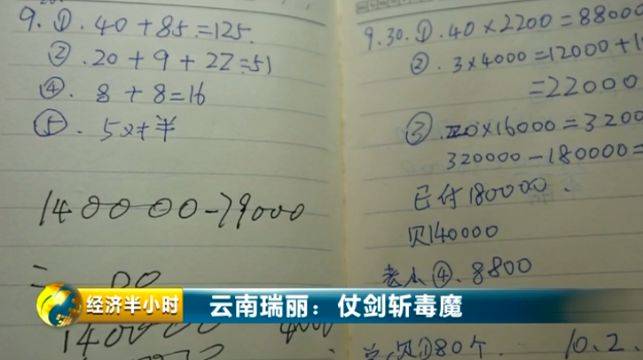 9. ①. 40+85=125
②. 20+9+22=51
④. 8+8=16
⑤. 5对半
140000-79000
9.30. ①. 40×2200=88000
②. 3×4000=12000+1
=22000
③. 20×16000=3200
320000-180000=
已付180000.
欠140000
④. 8800
80个
10.2.
经济半小时
云南瑞丽：仗剑斩毒魔